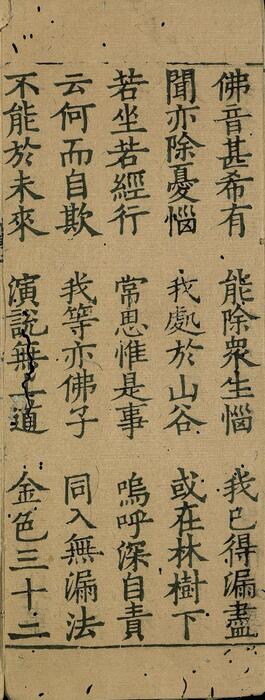 佛音甚希有　能除衆生惱　我已得漏盡
聞亦除憂惱　我處於山谷　或在林樹下
若坐若經行　常思惟是事　嗚呼深自責
云何而自欺　我等亦佛子　同入無漏法
不能於未來　演說無上道　金色三十二